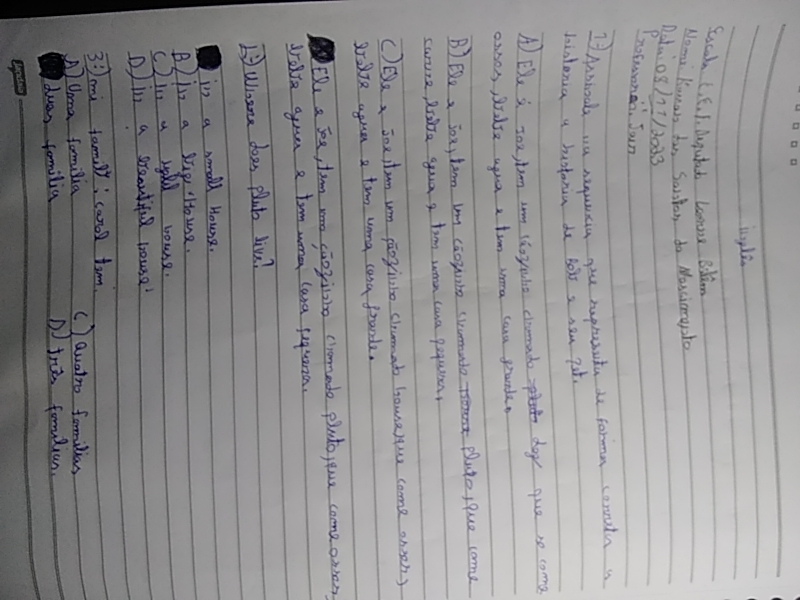 Inglês
Escola C.E.I. Deputado
Nome: dos Santos do Nascimento
Data: 08/11/2023
Professora:
1-) Assinale na sequência que representa de forma correta a
história a história de Bob e seu pet.
A) Ele é Joe, tem um cãozinho chamado dog que só come
ossos, bebe agua e tem uma casa grande.
B) Ele e Joe, tem um cãozinho chamado pluto, que come
carne, bebe agua e tem uma casa pequena.
C) Ele e Joe, tem um cãozinho chamado house, que come ossos,
bebe agua e tem uma casa grande.
Ele e Joe, tem um cãozinho chamado pluto, que come ossos,
bebe agua e tem uma casa pequena.
2-) Where does pluto live?
in a small House.
B) In a big House.
C) In a house.
D) In a beautiful house.
3-) mi famili: carol tem:
A) Uma família C) Quatro famílias
duas família D) três famílias.